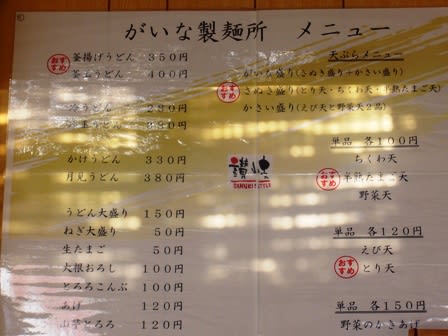 がいな製麺所 メニュー
おすすめ
釜揚げうどん 350円
釜玉うどん 400円
冷うどん 290円
330円
かけうどん 330円
月見うどん 380円
うどん大盛り 150円
ねぎ大盛り 50円
生たまご 50円
大根おろし 100円
とろろこんぶ 100円
あげ 120円
山芋とろろ 120円
讃岐
SANUKI STYLE
天ぷらメニュー
がいな盛り(さぬき盛り+かさい盛り)
おすすめ
さぬき盛り(とり天・ちくわ天・半熟たまご天)
かさい盛り(えび天と野菜天2品)
単品 各100円
ちくわ天
おすすめ
半熟たまご天
野菜天
単品 各120円
えび天
おすすめ
とり天
単品 各150円
野菜のかきあげ